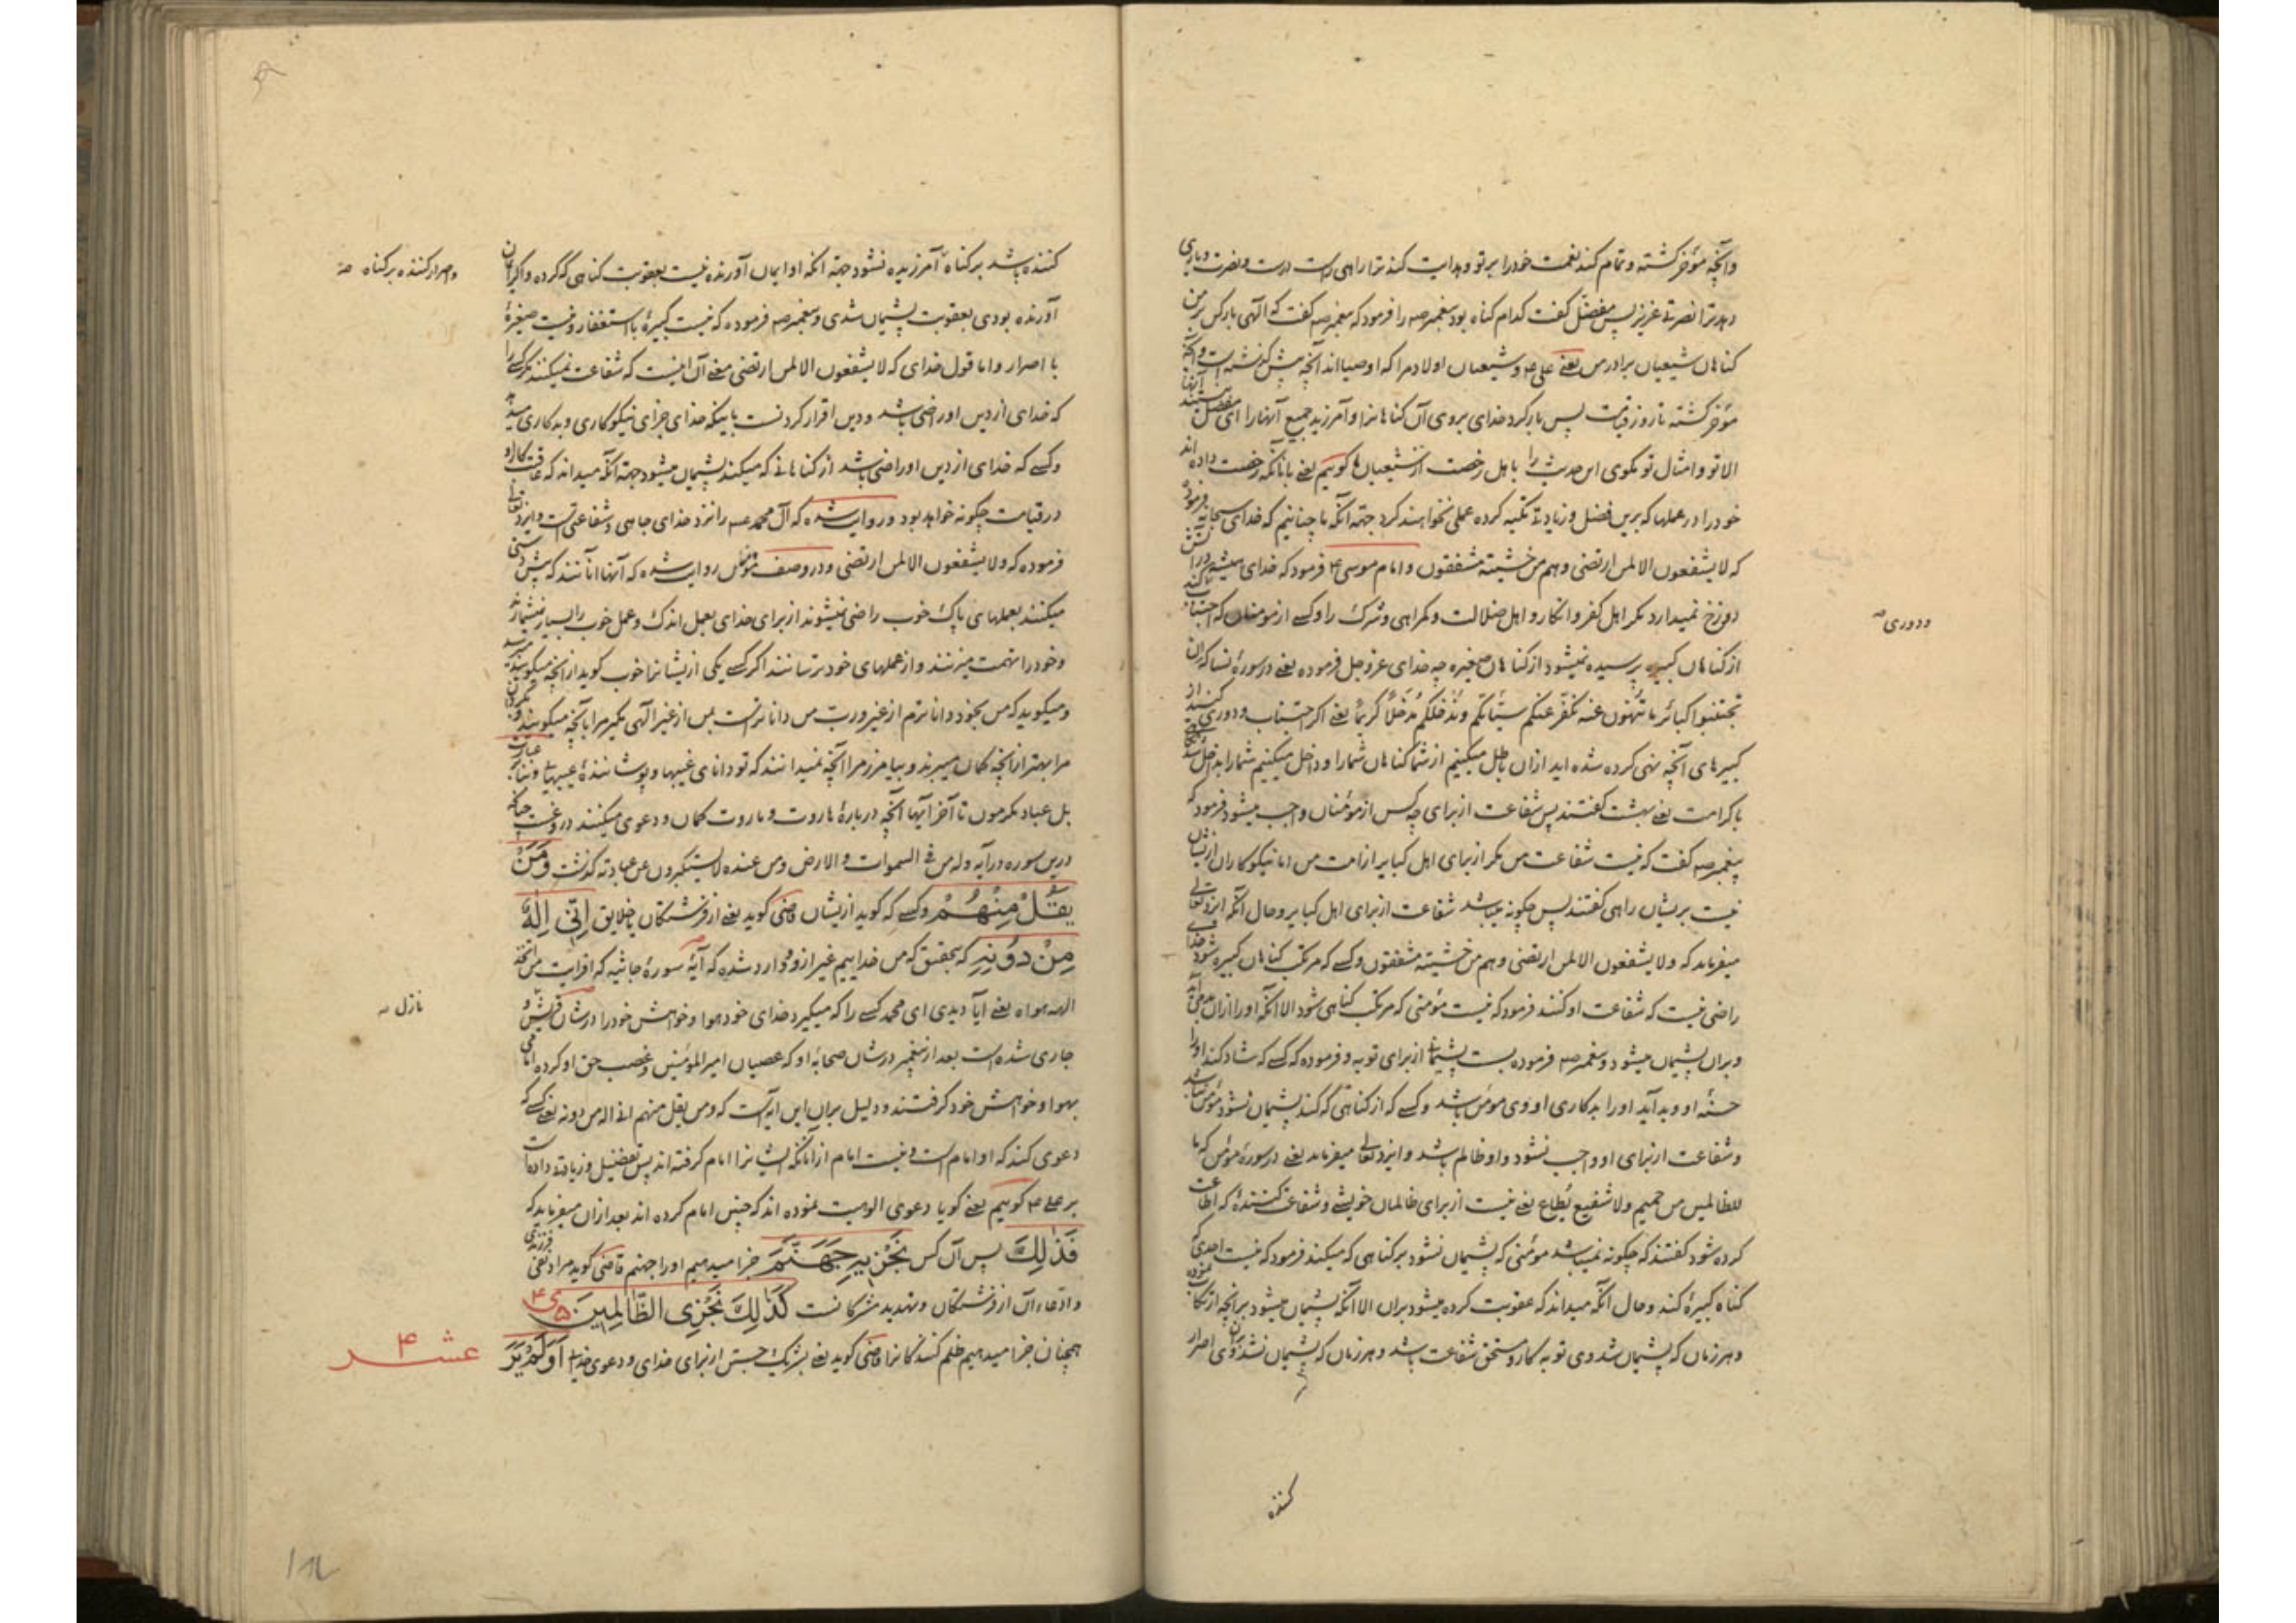 وآنچه مؤخر گشته و تمام کند نعمت خود را بر تو و هدایت کند ترا راهی راست درست و نصرت و یاری
دهد ترا نصرتی عزیز پس مفضل گفت کدام گناه بود پیغمبر صه را فرمود که پیغمبر صه گفت که الهی بار کن بر من
گناهان شیعیان برادر من یعنی علی ع و شیعیان اولاد مرا که اوصیااند آنچه پیش گذشته است و آنچه
مؤخر گشته تا روز قیامت پس بار کرد خدای بر وی آن گناهانرا و آمرزید جمیع آنها را ای مفضل نیستند آنها
الا تو و امثال تو مگوی این حدیث را با اهل رخصت از شیعیان ما گوییم یعنی با آنانکه رخصت داده اند
خود را در عملها که برین فضل و زیادت تکیه کرده عملی نخواهند کرد جهة آنکه ما چنانیم که خدای سبحانه فرموده
که لا یشفعون الا لمن ارتضی و هم من خشیته مشفقون و امام موسی ع فرمود که خدای همیشه در آتش
دوزخ نمیدارد مگر اهل کفر و انکار و اهل ضلالت و گمراهی و شرک را و کسی از مومنان که اجتناب کند
ودوری صه
از گناهان کبیره پرسیده نمیشود از گناهان صغیره چه خدای عز و جل فرموده یعنی در سورۀ نسا که ان
تجتنبوا کبائر ما تنهون عنه نکفر عنکم سیّئاتکم و ندخلکم مدخلا کریما یعنی اگر اجتناب و دوری کنند از
کبیرهای آنچه نهی کرده شده اید ازان باطل میکنیم از شما گناهان شما را و داخل میکنیم شما را بداخل شدنی
با کرامت یعنی بهشت گفتند پس شفاعت از برای چه کس از مؤمنان واجب میشود فرمود که
پیغمبر صه گفت که نیست شفاعت من مگر از برای اهل کبایر از امت من اما نیکوکاران ازیشان
نیست بریشان راهی گفتند پس چگونه میباشد شفاعت از برای اهل کبایر و حال آنکه ایزد تعالی
میفرماید که ولا یشفعون الا لمن ارتضی و هم من خشیته مشفقون و کسی که مرتکب گناهان کبیره شود خدای
راضی نیست که شفاعت او کنند فرمود که نیست مؤمنی که مرتکب گناهی شود الا آنکه او را ازان بد می آید
و بران پشیمان میشود و پیغمبر صه فرموده بست پشیمانی از برای توبه و فرموده که کسی که شاد کند او را
حسنۀ او و بد آید او را بدکاری او وی مؤمن باشد و کسی که از گناهی که کند پشیمان نشود مؤمن نباشد
و شفاعت از برای او واجب نشود و او ظالم باشد و ایزد تعالی میفرماید یعنی در سورۀ مؤمن که ما
للظالمین من حمیم ولا شفیع یُطاع یعنی نیست از برای ظالمان خویشی و شفاعت کنندۀ که اطاعت
کرده شود گفتند که چگونه نمیباشد مؤمنی که پشیمان نشود بر گناهی که میکند فرمود که نیست احدی که
گناه کبیرۀ کند و حال آنکه میداند که عقوبت کرده میشود بران الا آنکه پشیمان میشود بر آنچه ارتکاب نموده
و هر زمان که پشیمان شد وی توبه کار و مستحق شفاعت باشد و هر زمان که پشیمان نشد بران وی اصرار
کننده
کننده باشد بر گناه آمرزیده نشود جهة آنکه او ایمان آورنده نیست بعقوبت گناهی که کرده و اگر ایمان
واصرار کننده بر گناه صه
آورنده بودی بعقوبت پشیمان شدی و پیغمبر صه فرموده که نیست کبیرۀ با استغفار و نیست صغیرۀ
با اصرار و اما قول خدای که لا یشفعون الا لمن ارتضی معنی آن اینست که شفاعت نمیکنند مگر کسی را
که خدای از دین او راضی باشد و دین اقرار کردنست باینکه خدای جزای نیکوکاری و بدکاری میدهد
و کسی که خدای از دین او راضی باشد از گناهانی که میکند پشیمان میشود جهة آنکه میداند که عاقبت کار او
در قیامت چگونه خواهد بود و روایت شده که آل محمد ع را نزد خدای جاهی و شفاعتی است و ایزد تعالی
فرموده که ولا یشفعون الا لمن ارتضی و در وصف مؤمنان روایت شده که آنها آنانند که پیش دستی
میکنند بعملهای پاک خوب راضی نمیشوند از برای خدای بعمل اندک و عمل خوب را بسیار نمیشمارند
و خود را تهمت میزنند و از عملهای خود ترسانند اگر کسی یکی ازیشانرا خوب گوید از آنچه میگویند میترسد
و میگوید که من بخود داناترم از غیر و رب من داناتر است بمن از غیر الهی مگیر مرا بآنچه میگویند و بگردان
مرا بهتر از آنچه گمان میبرند و بیامرز مرا آنچه نمیدانند که تو دانای غیبها و پوشانندۀ عیبهایی
بل عباد مکرمون تا آخر آیها آنچه دربارۀ هاروت و ماروت گمان و دعوی میکنند دروغست چنانکه
درین سوره در آیه وله من فی السموات والارض ومن عنده لا یستکبرون عن عبادته گذشت وَمَنْ
یَقُلْ مِنْهُمْ و کسی که گوید ازیشان قاضی گوید یعنی از فرشتگان یا خلایق اِنّی اِلٰهٌ
مِنْ دُونِهِ که بتحقیق که من خداییم غیر از و وارد شده که آیۀ سورۀ جاثیه که افرایت من اتخذ
الهه هواه یعنی آیا دیدی ای محمد کسی را که میگیرد خدای خود هوا و خواهش خود را در شان قریش و
نازل صه
جاری شده است بعد از پیغمبر در شان صحابۀ او که عصیان امیر المؤمنین و غصب حق او کرده امامی
بهوا و خواهش خود گرفتند و دلیل بران این آیه است که ومن یقل منهم انی اله من دونه یعنی کسی که
دعوی کند که او امام است و نیست امام از آنانکه ایشانرا امام گرفته اند پس تفضیل و زیادت داده است
بر علی ع گوییم یعنی گویا دعوی الوهیت نموده اند که چنین امام کرده اند بعد ازان میفرماید که
فَذٰلِکَ پس آن کس نَجْزِیهِ جَهَنَّمَ جزا میدهیم او را جهنم قاضی گوید مراد نفی
وادعاء آن از فرشتگان و تهدید مشرکانست کَذٰلِکَ نَجْزِی الظَّالِمِینَ
همچنان جزا میدهیم ظلم کنندگانرا قاضی گوید یعنی بشریک جستن از برای خدای و دعوی خدایی اَوَلَمْ یَرَ
عشر ۴